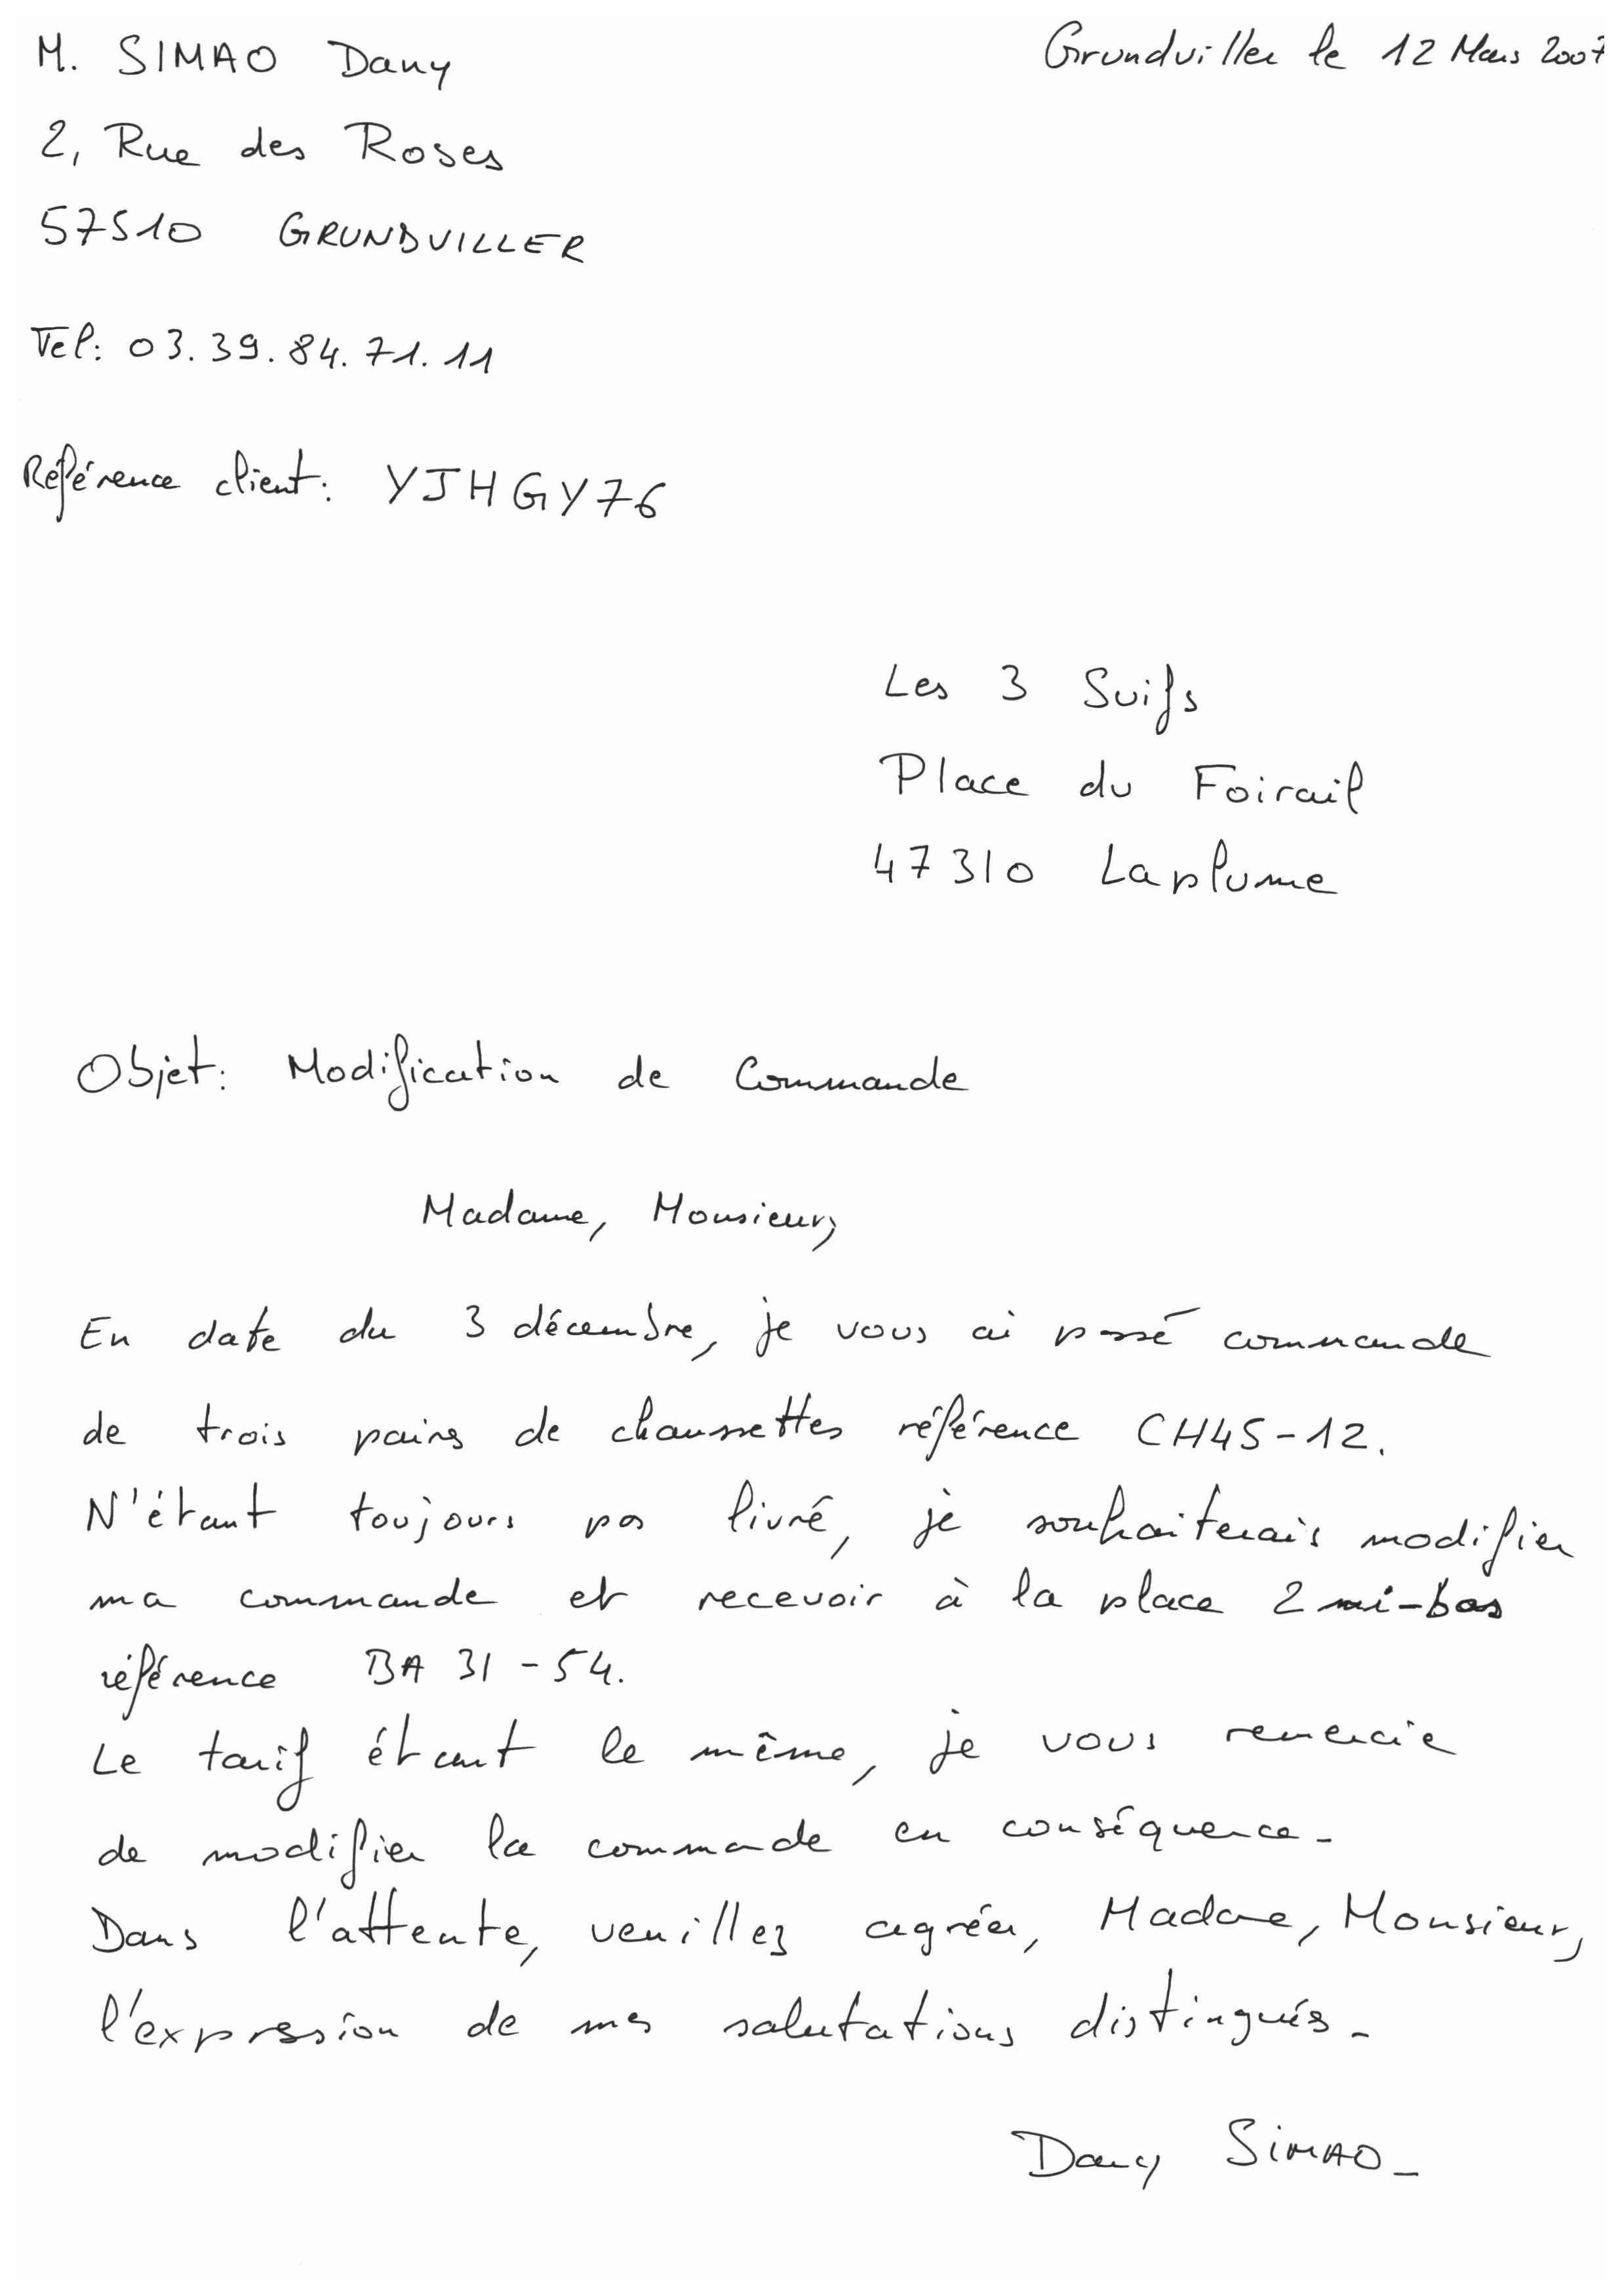 M. SIMAO Dany
Grundviller le 12 Mars 2007
2, Rue des Roses
57510 GRUNDVILLER
Tel: 03.39.84.71.11
Référence client: YJHGY76
Les 3 Suifs
Place du Foirail
47310 Laplume
Objet: Modification de Commande
Madame, Monsieur,
En date du 3 décembre, je vous ai passé commande
de trois paires de chaussettes référence CH45-12.
N'étant toujours pas livré, je souhaiterais modifier
ma commande et recevoir à la place 2 mi-bas
référence BA 31-54.
Le tarif étant le même, je vous remercie
de modifier la commande en conséquence.
Dans l'attente, veuillez agréer, Madame, Monsieur,
l'expression de mes salutations distingués.
Dany SIMAO.